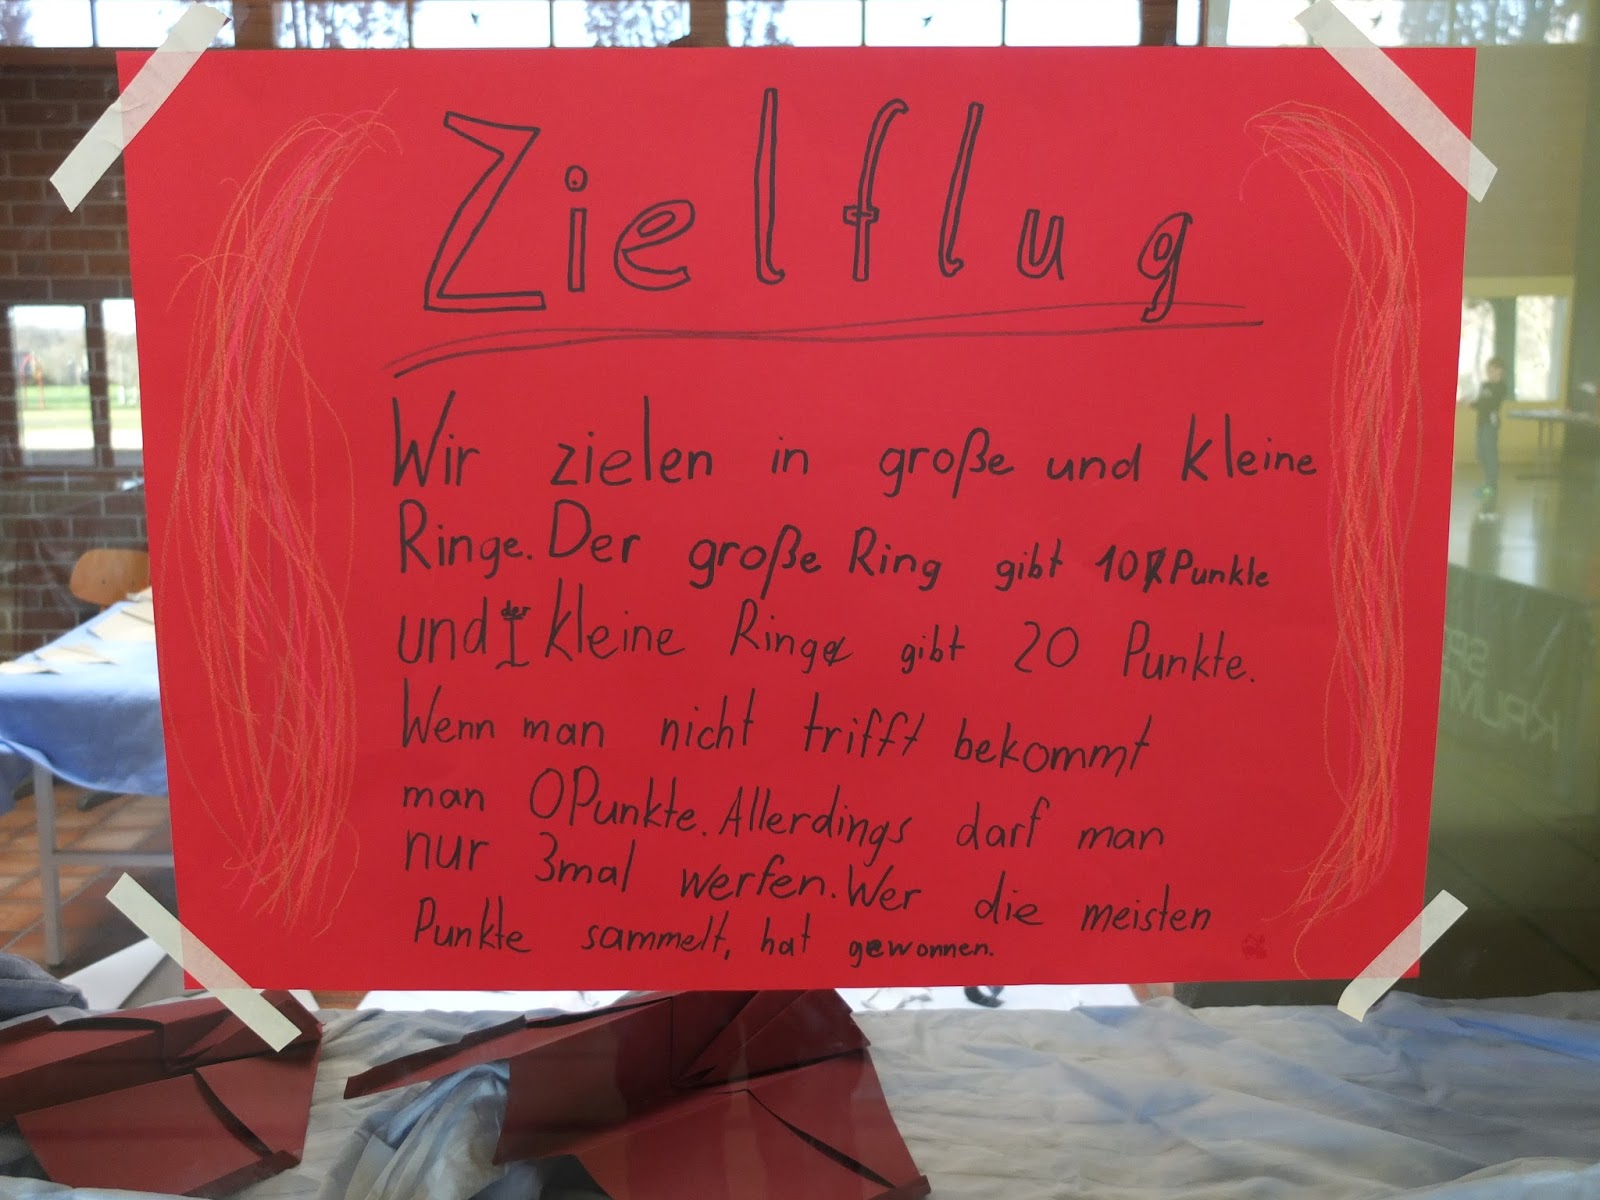 Zielflug
Wir zielen in große und kleine
Ringe. Der große Ring gibt 10 Punkte
und der kleine Ring gibt 20 Punkte.
Wenn man nicht trifft bekommt
man 0 Punkte. Allerdings darf man
nur 3mal werfen. Wer die meisten
Punkte sammelt, hat gewonnen.